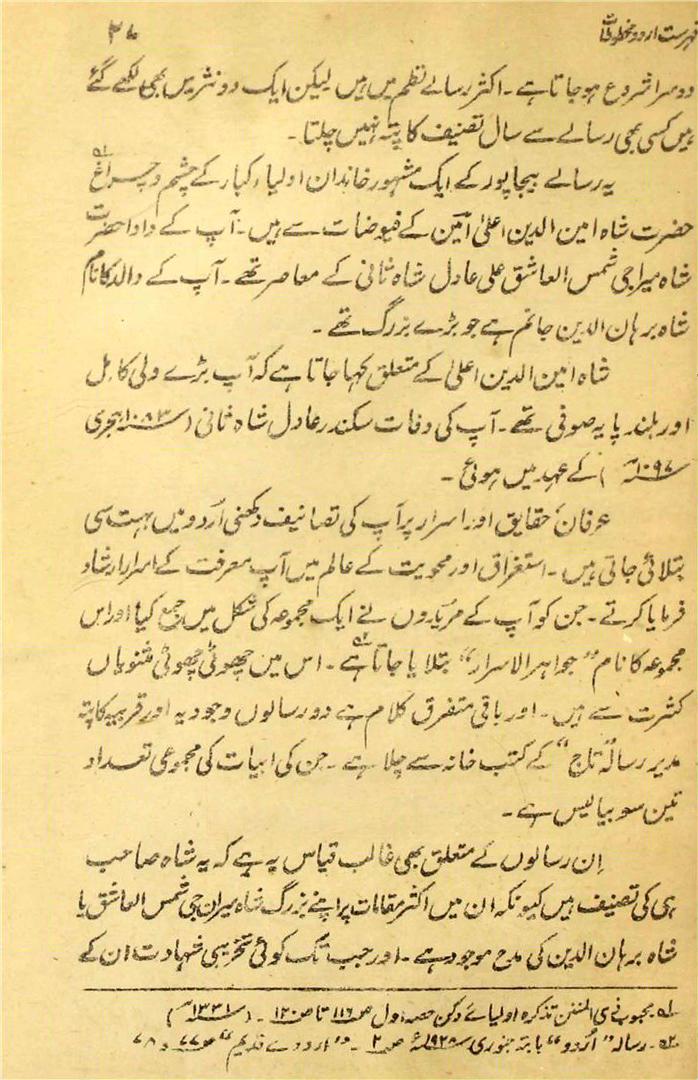 فہرست اردو مخطوطات
۳۷
دوسرا شروع ہوجاتا ہے ۔ اکثر رسالے نظم میں ہیں لیکن ایک دو نثر میں بھی لکھے گئے
ہیں کسی بھی رسالے سے سال تصنیف کا پتہ نہیں چلتا ۔
یہ رسالے بیجاپور کے ایک مشہور خاندان اولیاء کبار کے چشم و چراغ ۱؎
حضرت شاہ امین الدین اعلیٰ امین کے فیوضات سے ہیں ۔ آپ کے دادا حضرت
شاہ میراجی شمس العاشق علی عادل شاہ ثانی کے معاصر تھے ۔ آپ کے والد کا نام
شاہ برہان الدین جانم ہے جو بڑے بزرگ تھے ۔
شاہ امین الدین اعلیٰ کے متعلق کہا جاتا ہے کہ آپ بڑے ولی کامل
اور بلند پایہ صوفی تھے ۔ آپ کی وفات سکندر عادل شاہ ثانی (سنہ ۱۰۸۳ ہجری
سنہ ۱۰۹۷ ) کے عہد میں ہوئی ۔
عرفان حقایق اور اسرار پر آپ کی تصانیف دکھنی اُردو میں بہت سی
بتلائی جاتی ہیں ۔ استغراق اور محویت کے عالم میں آپ معرفت کے اسرار ارشاد
فرمایا کرتے ۔ جن کو آپ کے مریدوں نے ایک مجموعہ کی شکل میں جمع کیا اور اس
مجموعہ کا نام ”جواہر الاسرار“ بتلایا جاتا ہے ۲؎ ۔ اس میں چھوٹی چھوٹی مثنویاں
کثرت سے ہیں ۔ اور باقی متفرق کلام ہے دو رسالوں وجودیہ اور قربیہ کا پتہ
مدیر رسالہ ”تاج“ کے کتب خانہ سے چلا ہے ۔ جن کی ابیات کی مجموعی تعداد
تین سو بیالیس ہے ۔
اِن رسالوں کے متعلق بھی غالب قیاس یہ ہے کہ یہ شاہ صاحب
ہی کی تصنیف ہیں کیونکہ ان میں اکثر مقامات پر اپنے بزرگ شاہ میران جی شمس العاشق یا
شاہ برہان الدین کی مدح موجود ہے ۔ اور جب تک کوئی تخریبی شہادت ان کے
۱؎ محبوب ذی المنن تذکرہ اولیائے دکن حصہ اول ص ۱۱۶ تا ص ۱۲۰ ۔ (سنہ ۱۳۳۱)
۲؎ رسالہ ”اُردو“ بابتہ جنوری سنہ ۱۹۲۸ء ص ۲ ۔ و ”اردوے قدیم“ ص ۷۷ و ۷۸